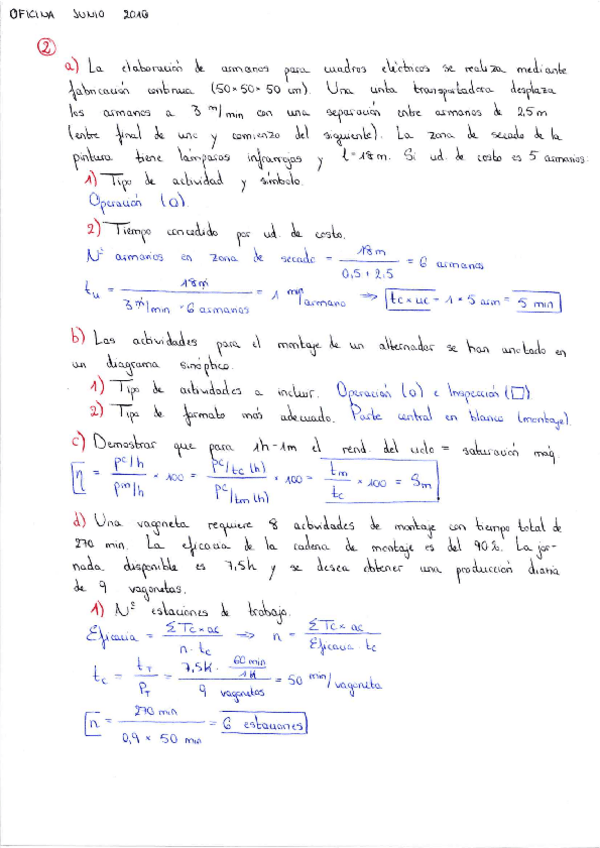 OFICINA JUNIO 2016
2
a) La elaboración de armarios para cuadros eléctricos se realiza mediante
fabricación continua (50×50×50 cm). Una cinta transportadora desplaza
los armarios a 3 m/min con una separación entre armarios de 2,5 m
(entre final de uno y comienzo del siguiente). La zona de secado de la
pintura tiene lámparas infrarrojas y l=18m. Si ud. de costo es 5 armarios.
1) Tipo de actividad y símbolo.
Operación (O).
2) Tiempo concedido por ud. de costo.
Nº armarios en zona de secado = 18m / 0,5 + 2,5 = 6 armarios
tu = 18m / 3 m/min · 6 armarios = 1 min/armario ⇒ tc × uc = 1 × 5 arm = 5 min
b) Las actividades para el montaje de un alternador se han anotado en
un diagrama sinóptico.
1) Tipo de actividades a incluir. Operación (O) e Inspección (□).
2) Tipo de formato más adecuado. Parte central en blanco (montaje).
c) Demostrar que para 1h-1m el rend. del ciclo = saturación máq
η = pc/h / pm/h × 100 = pc/tc (h) / pc/tm (h) × 100 = tm / tc × 100 = Sm
d) Una vagoneta requiere 8 actividades de montaje con tiempo total de
270 min. La eficacia de la cadena de montaje es del 90%. La jor-
nada disponible es 7,5h y se desea obtener una producción diaria
de 9 vagonetas.
1) Nº estaciones de trabajo.
Eficacia = ΣTc × ac / n · tc ⇒ n = ΣTc × ac / Eficacia · tc
tc = tT / PT = 7,5h · 60 min / 1h / 9 vagonetas = 50 min/vagoneta
n = 270 min / 0,9 × 50 min = 6 estaciones